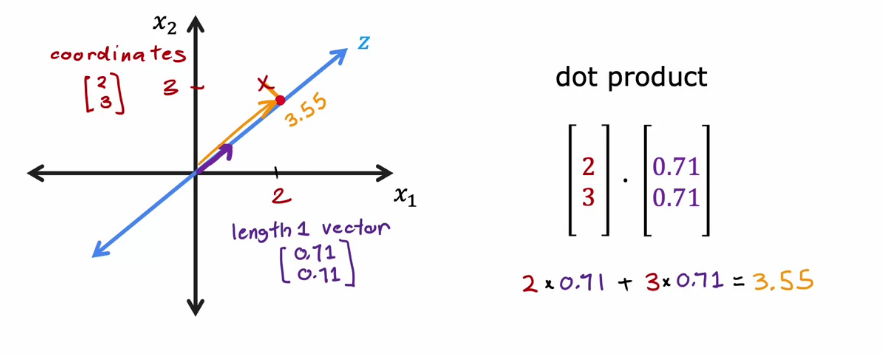 x₂
z
coordinates
[2
3]
3
x
3.55
2
x₁
length 1 vector
[0.71
0.71]
dot product
[2
3] · [0.71
0.71]
2 × 0.71 + 3 × 0.71 = 3.55